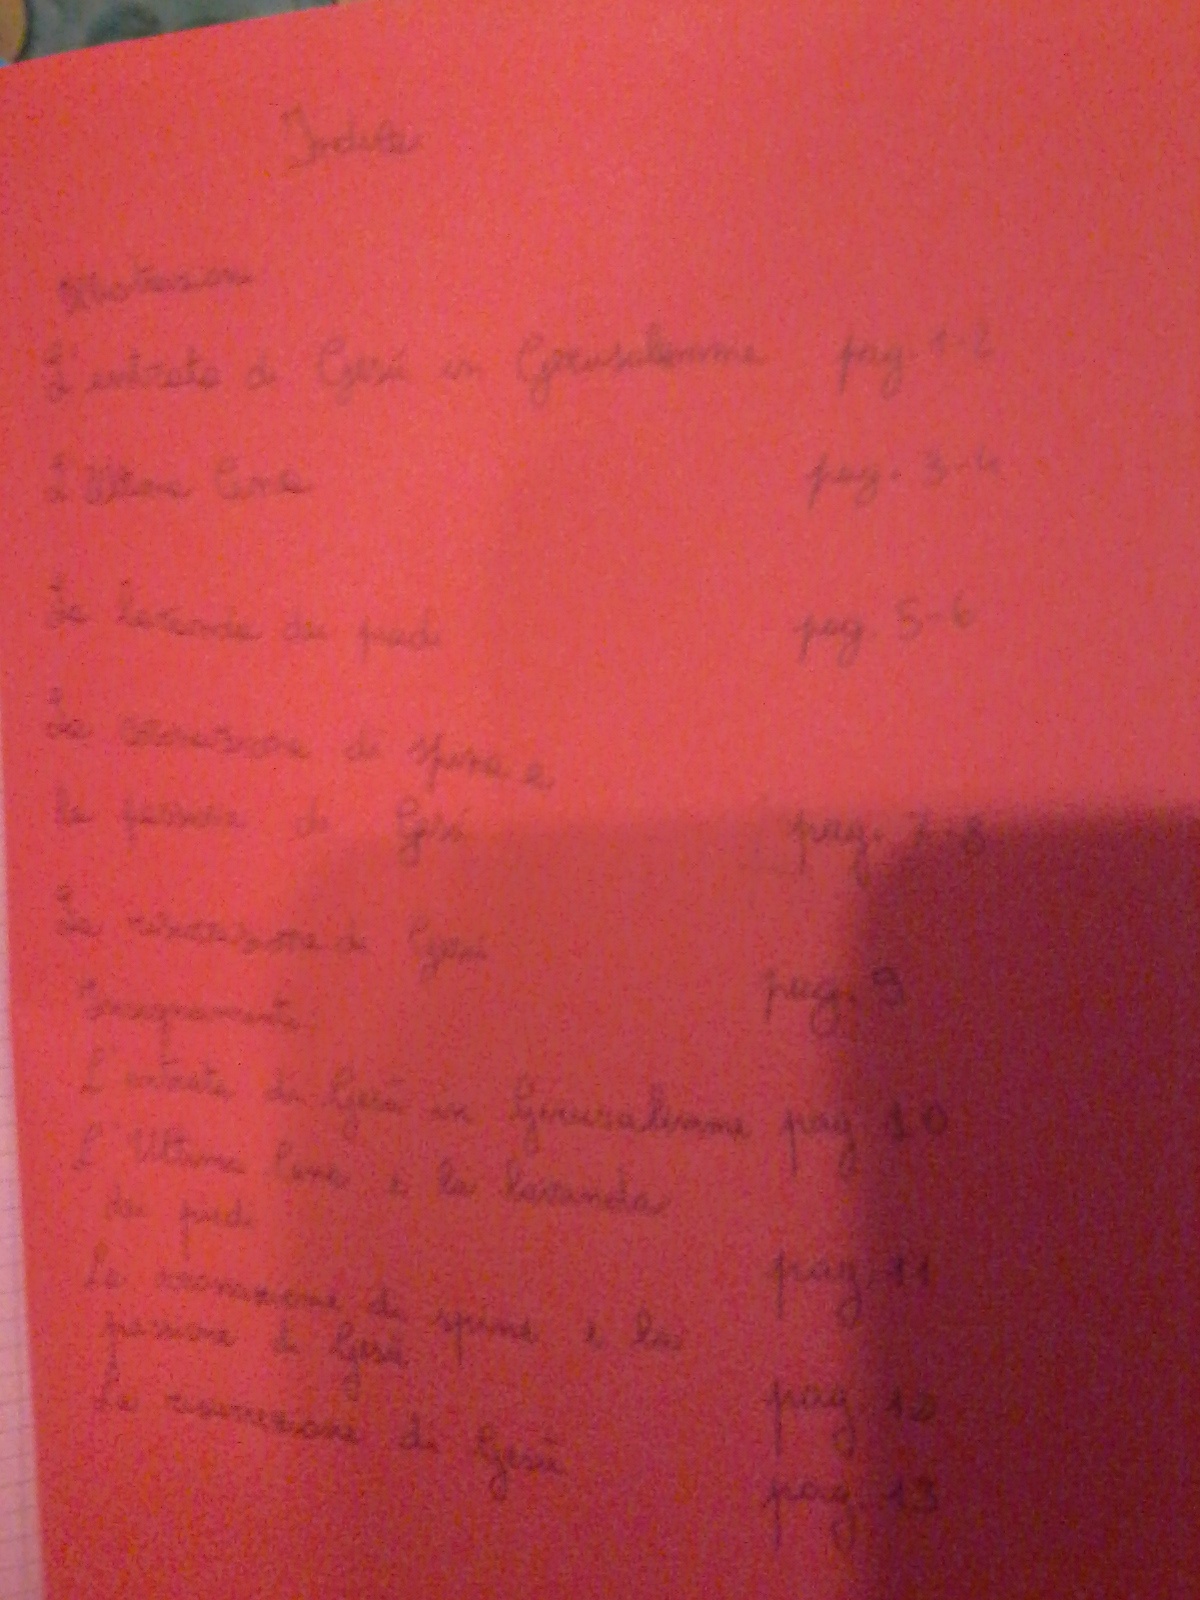 Indice
L'entrata di Gesù in Gerusalemme pag. 1-2
L'Ultima Cena pag. 3-4
La lavanda dei piedi pag. 5-6
La coronazione di spine e
la passione di Gesù pag. 7-8
La resurrezione di Gesù pag. 9
Insegnamenti
L'entrata di Gesù in Gerusalemme pag. 10
L'Ultima Cena e la lavanda
dei piedi pag. 11
La coronazione di spine e la
passione di Gesù pag. 12
La resurrezione di Gesù pag. 13